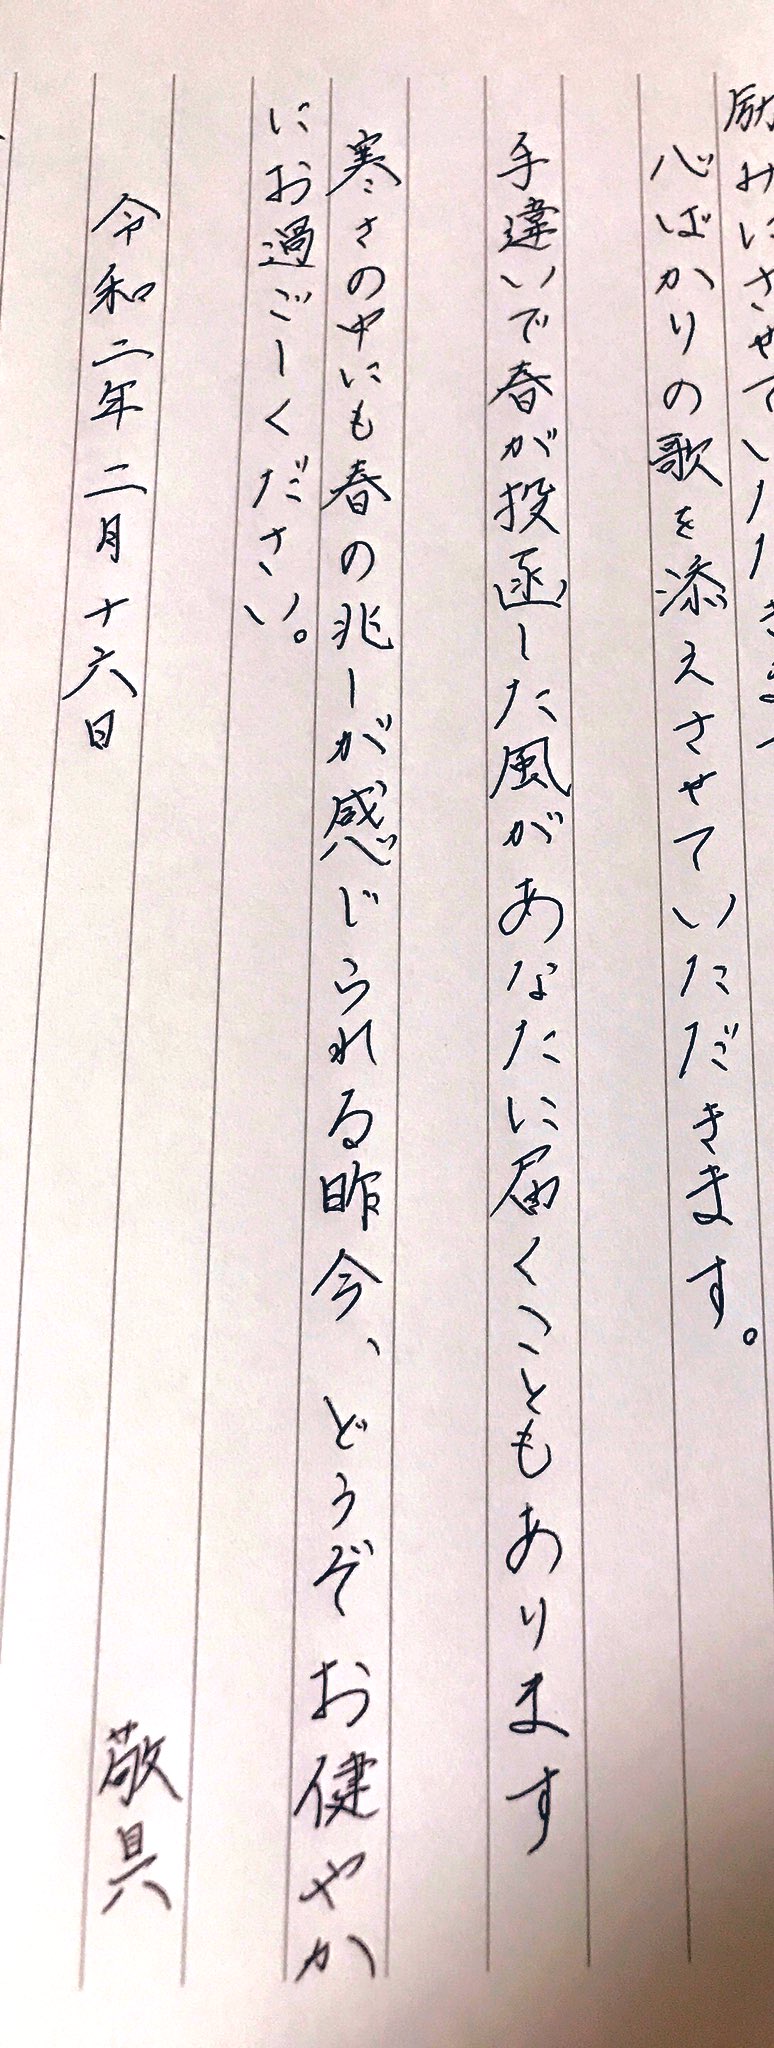 励みにさせていただきます
心ばかりの歌を添えさせていただきます。
手違いで春が投函した風があなたに届くこともあります
寒さの中にも春の兆しが感じられる昨今、どうぞお健やか
にお過ごしください。
令和二年二月十六日
敬具